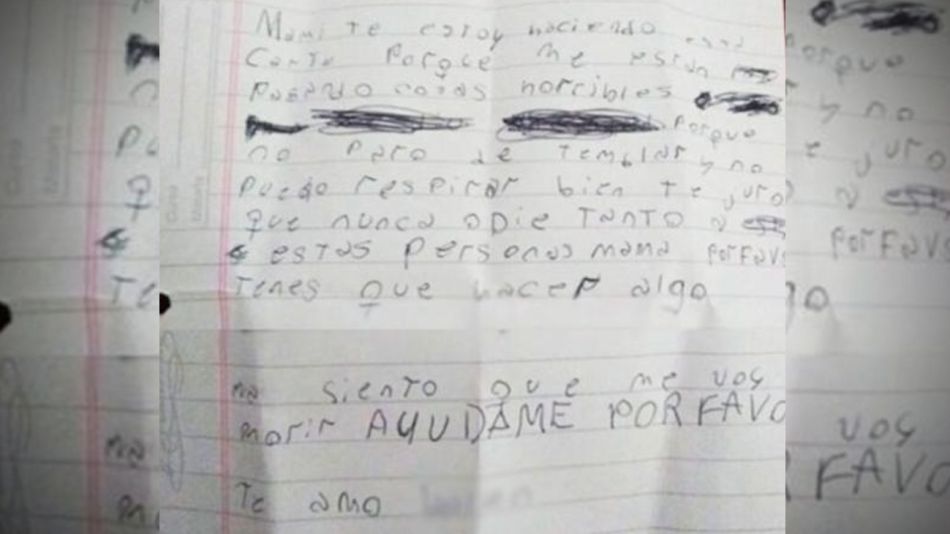 Mami te estoy haciendo esta
Carta Porqe me estan
Pasando cosas horribles
Porque
no Paro de Temblar y no
Puedo respirar bien Te juro
que nunca odie TANTO a
estas Personas mama PorFav
Tenes que hacer algo
me siento que me voy
morir AYUDAME POR FAVO
Te amo